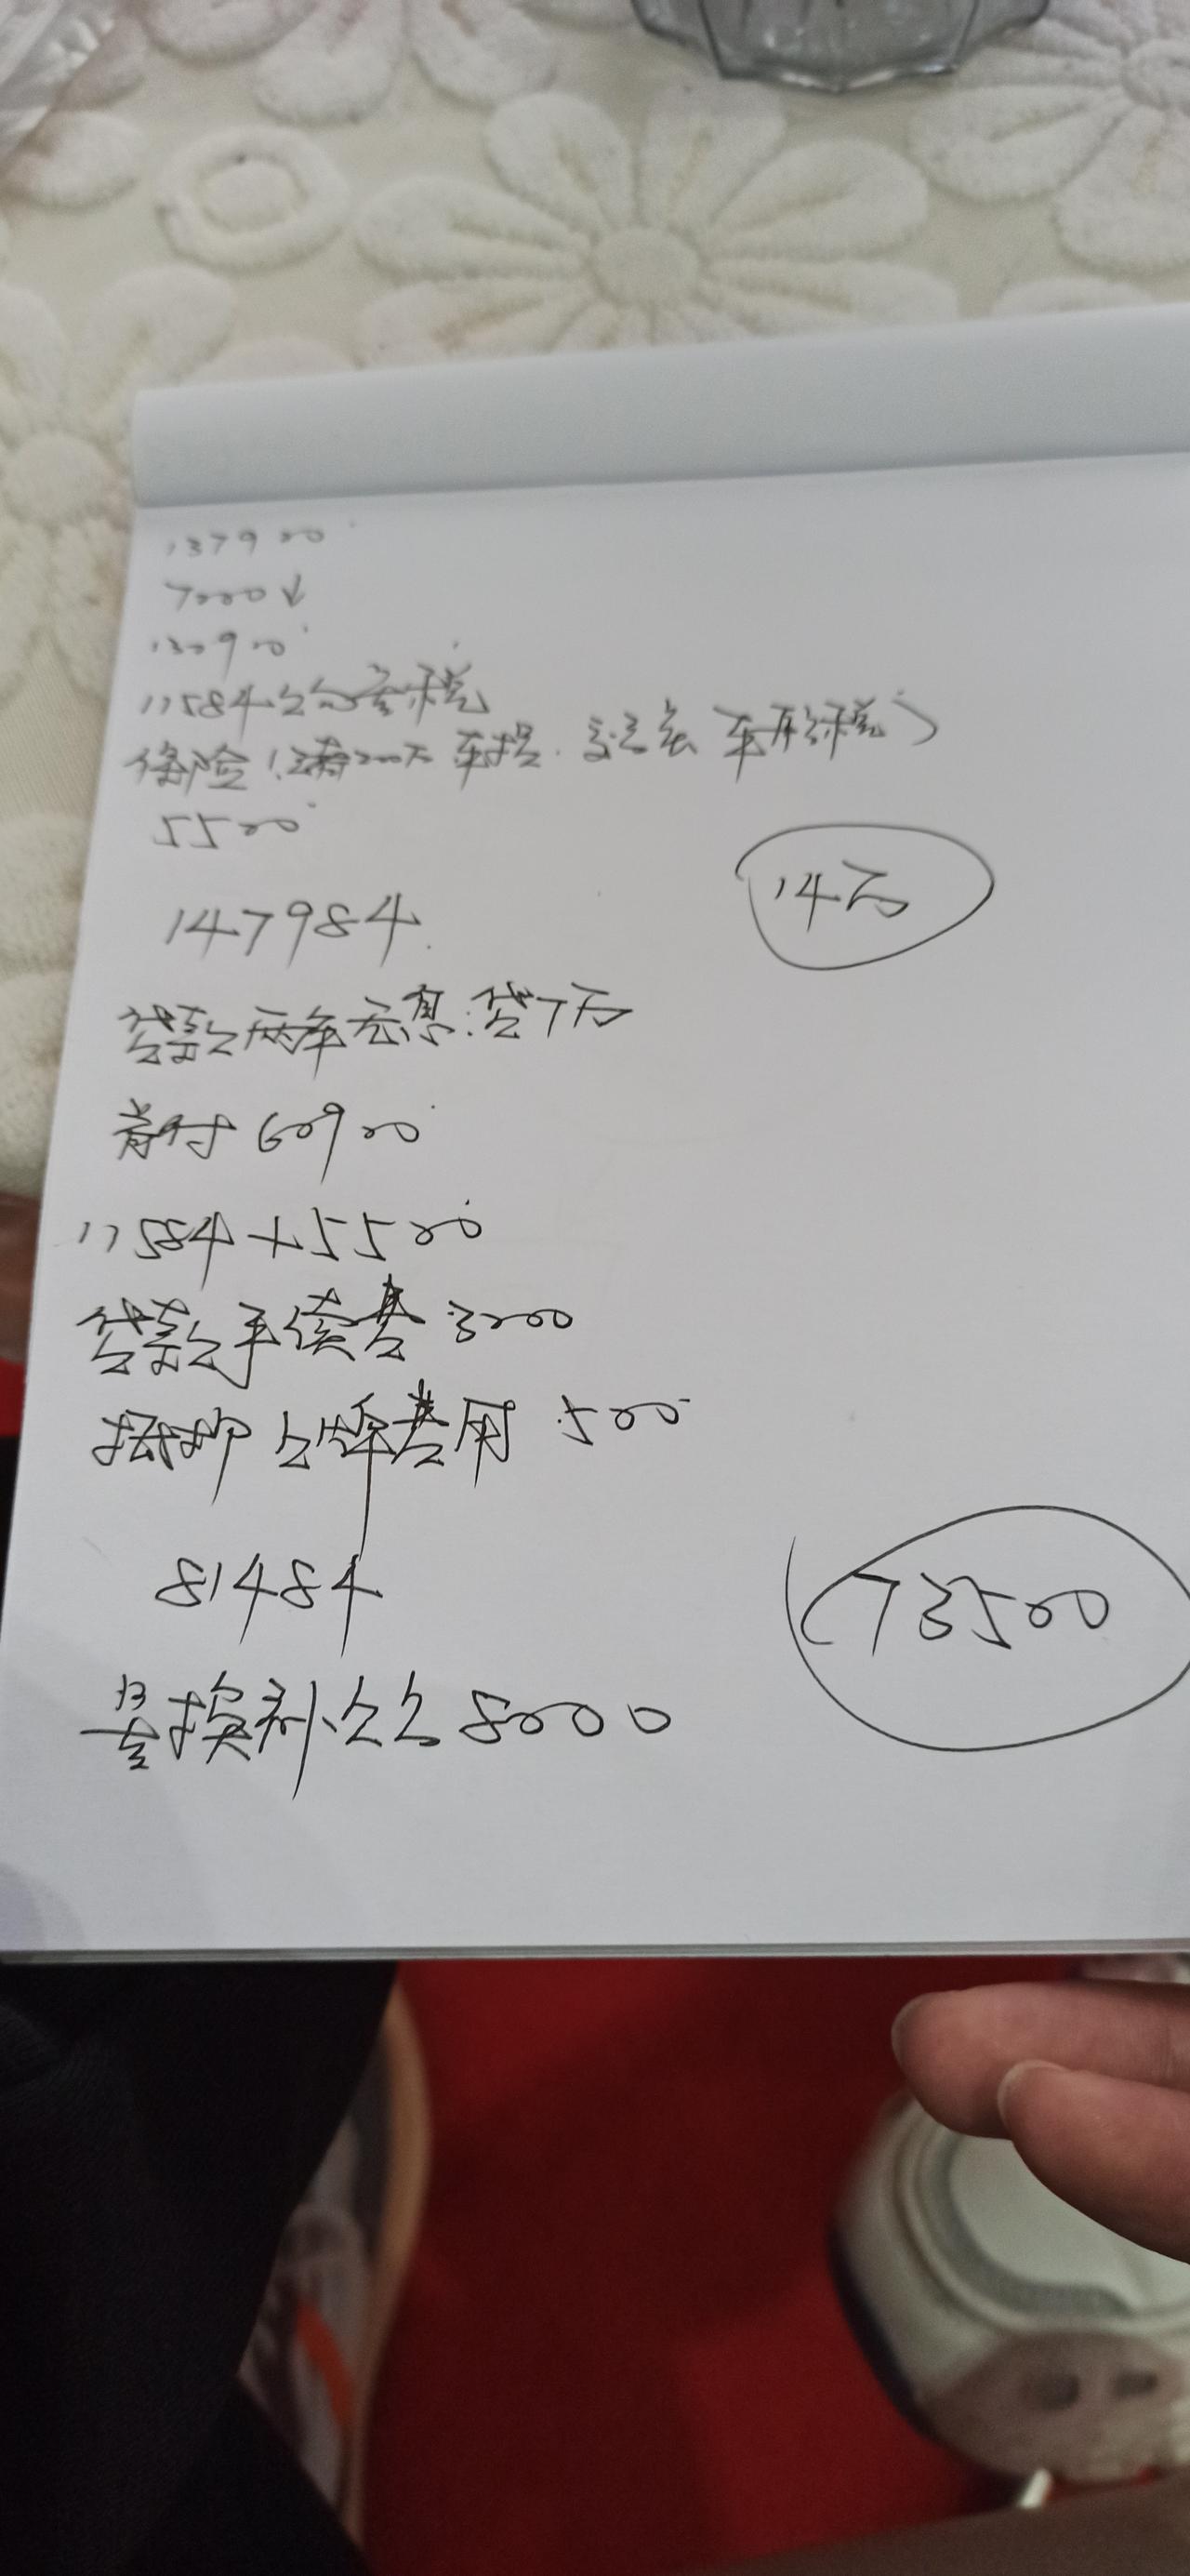 137900
7000↓
130900
11584 购置税
保险(三者200万 车损 交强 车船税)
5500
147984
14万
贷款两年无息:贷7万
首付 60900
11584+5500
贷款手续费 3000
抵押上牌费用 500
81484
73500
置换补贴 8000